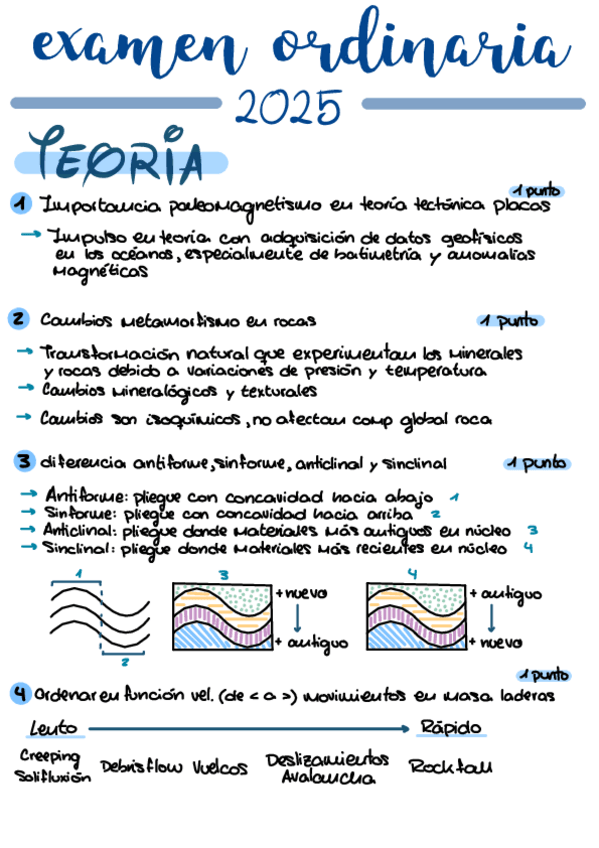 examen ordinaria
2025
TEORÍA
1 punto
1 Importancia paleomagnetismo en teoría tectónica placas
→ Impulso en teoría con adquisición de datos geofísicos
en los océanos, especialmente de batimetría y anomalías
magnéticas
2 Cambios metamorfismo en rocas 1 punto
→ Transformación natural que experimentan los minerales
y rocas debido a variaciones de presión y temperatura
→ Cambios mineralógicos y texturales
→ Cambios son isoquímicos, no afectan comp global roca
3 diferencia antiforme, sinforme, anticlinal y sinclinal 1 punto
→ Antiforme: pliegue con concavidad hacia abajo 1
→ Sinforme: pliegue con concavidad hacia arriba 2
→ Anticlinal: pliegue donde materiales más antiguos en núcleo 3
→ Sinclinal: pliegue donde materiales más recientes en núcleo 4
1 3 4
+nuevo + antiguo
+ antiguo + nuevo
2
1 punto
4 Ordenar en función vel. (de < a >) movimientos en masa laderas
Lento Rápido
Creeping Debrisflow Vuelcos Deslizamientos Rockfall
Solifluxión Avalancha